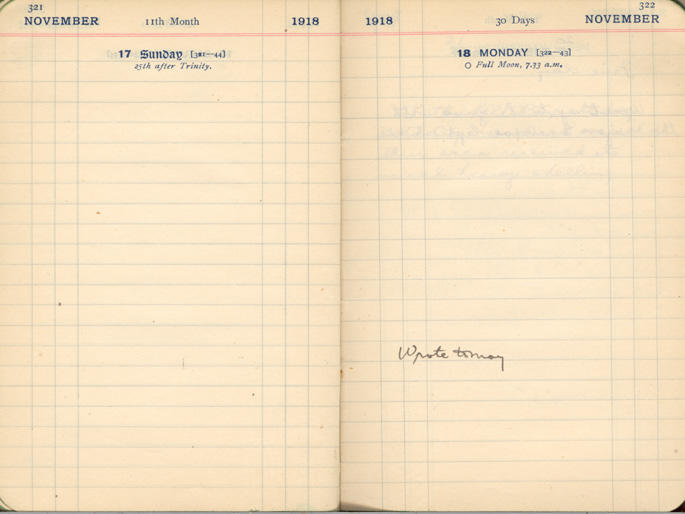 321
NOVEMBER 11th Month 1918
17 Sunday [321—44]
25th after Trinity.
322
1918 30 Days NOVEMBER
18 MONDAY [322—43]
O Full Moon, 7.33 a.m.
Wrote to May